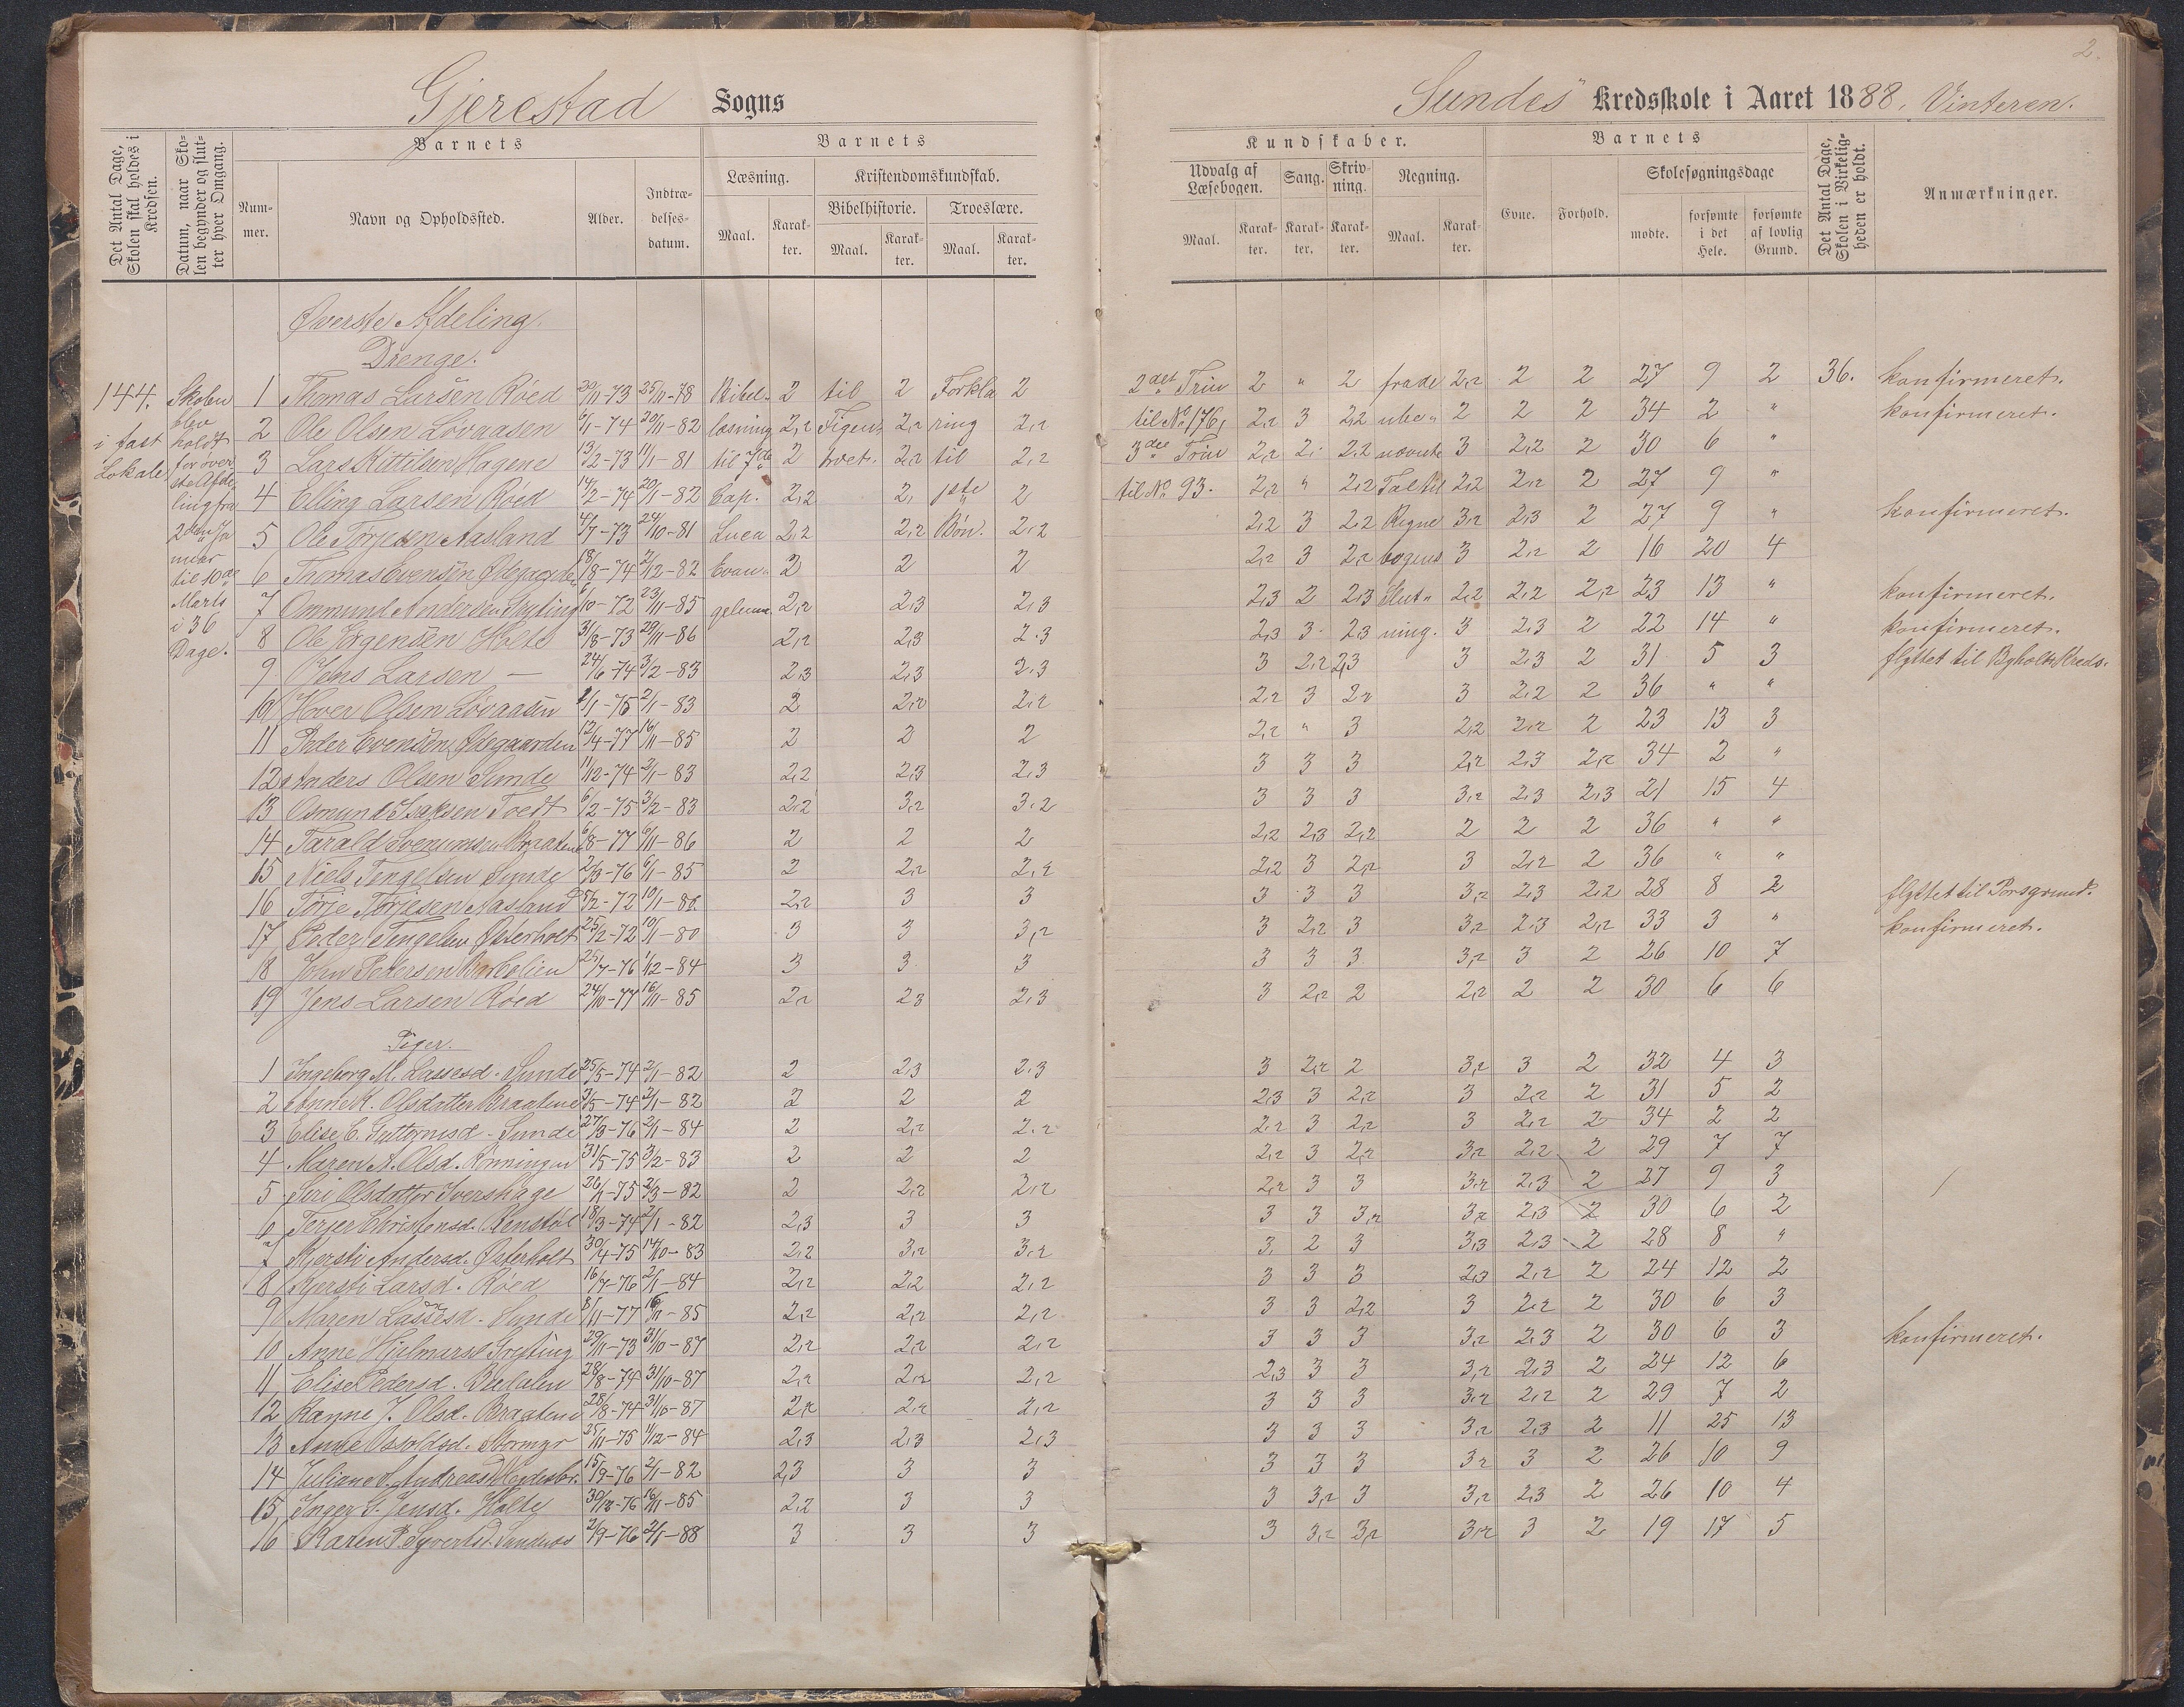 2.
Gjerestad Sogns
Sundes Kredsskole i Aaret 1888, Vinteren.
Det Antal Dage, Skolen skal holdes i Kredsen.
Datum, naar Skolen begynder og slutter hver Omgang.
Barnets
Nummer.
Navn og Opholdssted.
Alder.
Indtrædelsesdatum.
Barnets
Læsning.
Maal.
Karakter.
Kristendomskundskab.
Bibelhistorie.
Maal.
Karakter.
Troeslære.
Maal.
Karakter.
Kundskaber.
Udvalg af Læsebogen.
Maal.
Karakter.
Sang.
Karakter.
Skrivning.
Karakter.
Regning.
Maal.
Karakter.
Barnets
Evne.
Forhold.
Skolesøgningsdage
mødte.
forsømte i det Hele.
forsømte af lovlig Grund.
Det Antal Dage, Skolen i Virkeligheden er holdt.
Anmærkninger.
Øverste Afdeling.
Drenge.
144. i fast Lokale
Skolen blev holdt for øverste Afdeling fra 2den Januar til 10de Marts i 36 Dage.
1 Thomas Larsen Røed 20/11-73 25/11-78 Bibel- 2 til 2 Forkla 2 2det Trin 2 " 2 frade 2,2 2 2 27 9 2 36. konfirmeret.
2 Ole Olsen Lövaasen 6/1-74 20/11-82 læsning 2,2 Figen- 2,2 ring 2,2 til No 176, 2,2 3 2,2 ube- 2 2 2 34 2 " konfirmeret.
3 Lars Kittilsen Hagene 13/2-73 11/1-81 til 7de 2 træet. 2,2 til 2,2 3die Trin 2,2 2 2,2 nævnte 3 2,2 2 30 6 "
4 Elling Larsen Røed 14/2-74 20/1-82 Cap. 2,2 2, 2 til No 93. 2,2 " 2,2 Tal til 2,2 2,2 2 27 9 "
5 Ole Törjesen Aasland 4/7-73 24/10-81 Luca 2,2 2,2 Bön. 2,2 2,2 3 2,2 Regne 3,2 2,3 2 27 9 " konfirmeret.
6 Thomas Evensen Ødegaarden 18/8-74 2/12-82 Evan- 2 2 2 2,2 3 2,2 bogens 3 2,2 2 16 20 4
7 Ommund Andersen 6/10-72 23/11-85 2,2 2,3 2,3 2,3 2 2,3 Slut- 2,2 2,2 2,2 23 13 " konfirmeret.
8 Ole Jörgensen Holte 31/8-73 29/11-86 2,2 2,3 2,3 2,3 3 2,3 ning. 3 2,3 2 22 14 " konfirmeret.
9 Jens Larsen — 24/6-74 3/2-83 2,3 2,3 2,3 3 2,2 2,3 3 2,3 2 31 5 3 flyttet til Byholt Kreds.
10 Olsen Lövaasen 2/1-83 2 2,2 2,2 2,2 3 2,2 3 2,2 2 36 " "
11 Peder Evensen Ødegaarden 12/4-77 16/11-85 2 2 2 2,2 " 3 2,2 2,2 2 23 13 3
12 Anders Olsen Sunde 11/12-74 2/1-83 2,2 2,3 2,3 3 3 3 2,2 2,3 2,2 34 2 "
13 Osmund Isaksen Tvedt 6/2-75 3/2-83 2,2 3,2 3,2 3 3 3 3,2 2,3 2,3 21 15 4
14 Tarald 6/8-77 6/11-86 2 2 2 2,2 2,3 2,2 2 2 2 36 " "
15 Niels Tengelsen Sunde 2/3-76 6/1-85 2 2,2 2,2 2,2 3 2,2 3 2,2 2 36 " "
16 Törje Törjesen Aasland 2,2 3 3 3 3 3 3,2 2,3 2,2 28 8 2 flyttet til Porsgrund.
17 Peder Tengelsen Østerholt 25/2-72 10/1-80 3 3 3,2 3 2,2 3 3,2 2,3 2,2 33 3 " konfirmeret.
18 John Pedersen 25/7-76 1/12-84 3 3 3 3 3 3 3,2 3 2 26 10 7
19 Jens Larsen Røed 24/10-77 16/11-85 2,2 2,3 2,3 3 2,2 2 2,2 2 2 30 6 6
Piger.
1 Ingeborg M. Lassesd. Sunde 25/5-74 2/1-82 2 2,3 2,3 3 2,2 2 3,2 3 2 32 4 3
2 Anne K. Olsdatter Braatene 3/5-74 2/1-82 2 2 2 2,3 3 2,2 3 2,2 2 31 5 2
3 Elise E. Guttormsd. Sunde 27/3-76 2/1-84 2 2,2 2,2 2,2 3 2,2 3 2,2 2 34 2 2
4 Maren A. Olsd. Rönningen 31/5-75 3/2-83 2 2 2 2,2 3 2,2 3,2 2,2 2 29 7 7
5 Siri Olsdatter Ivershage 2/3-82 2 2,2 2,2 2,2 3 3 3,2 2,3 2 27 9 3
6 Christensd. Renstöl 18/3-74 2/1-82 2,3 3 3 3 3 3,2 3,2 2,3 2 30 6 2
7 Kjersti Andersd. Østerholt 30/4-75 14/10-83 2,2 3,2 3,2 3, 2 3 3,3 2,3 2 28 8 "
8 Kjersti Larsd. Røed 16/7-76 2/1-84 2,2 2,2 2,2 3 3 3 2,3 2,2 2 24 12 2
9 Maren Lassesd. Sunde 8/11-77 16/11-85 2,2 2,2 2,2 3 3 2,2 3 2,2 2 30 6 3
10 Anne Hjelmarsd. 29/11-73 31/10-87 2,2 2,2 2,2 3 3 3 3,2 2,3 2 30 6 3 konfirmeret.
11 Elise Pedersd. 28/8-74 31/10-87 2,2 2,2 2,2 2,3 3 3 3,2 2,3 2 24 12 6
12 Hanne J. Olsd. Braatene 28/8-74 31/10-87 2,2 2,2 2,2 3 3 3 3,2 2,2 2 29 7 2
13 Anne Osvoldsd. Stormyr 25/11-75 1/12-84 2,3 2,3 2,3 3 3 3 3,2 2,3 2 11 25 13
14 Juliane A. Andreasd. 15/9-76 2/1-82 2,3 3 3 3 3 3 3,2 3 2 26 10 9
15 Inger S. Jensd. Holte 30/12-76 16/11-85 2,2 3 3 3 3,2 3 3,2 2,3 2 26 10 4
16 Karen P. Syvertsd. 2/9-76 2/1-88 3 3 3 3 3,2 3,2 3,2 3 2 19 17 5